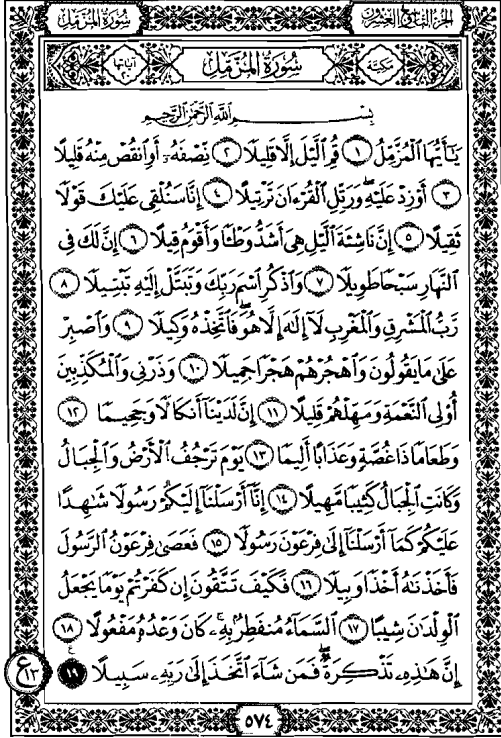 الجزء التاسع والعشرون سورة المزمل
مكية سُورَةُ الْمُزَّمِّلِ آياتها ٢٠
بِسْمِ اللَّهِ الرَّحْمَٰنِ الرَّحِيمِ
يَٰٓأَيُّهَا ٱلْمُزَّمِّلُ ١ قُمِ ٱلَّيْلَ إِلَّا قَلِيلًا ٢ نِّصْفَهُۥٓ أَوِ ٱنقُصْ مِنْهُ قَلِيلًا
٣ أَوْ زِدْ عَلَيْهِ وَرَتِّلِ ٱلْقُرْءَانَ تَرْتِيلًا ٤ إِنَّا سَنُلْقِى عَلَيْكَ قَوْلًا
ثَقِيلًا ٥ إِنَّ نَاشِئَةَ ٱلَّيْلِ هِىَ أَشَدُّ وَطْـًٔا وَأَقْوَمُ قِيلًا ٦ إِنَّ لَكَ فِى
ٱلنَّهَارِ سَبْحًا طَوِيلًا ٧ وَٱذْكُرِ ٱسْمَ رَبِّكَ وَتَبَتَّلْ إِلَيْهِ تَبْتِيلًا ٨
رَّبُّ ٱلْمَشْرِقِ وَٱلْمَغْرِبِ لَآ إِلَٰهَ إِلَّا هُوَ فَٱتَّخِذْهُ وَكِيلًا ٩ وَٱصْبِرْ
عَلَىٰ مَا يَقُولُونَ وَٱهْجُرْهُمْ هَجْرًا جَمِيلًا ١٠ وَذَرْنِى وَٱلْمُكَذِّبِينَ
أُو۟لِى ٱلنَّعْمَةِ وَمَهِّلْهُمْ قَلِيلًا ١١ إِنَّ لَدَيْنَآ أَنكَالًا وَجَحِيمًا ١٢
وَطَعَامًا ذَا غُصَّةٍ وَعَذَابًا أَلِيمًا ١٣ يَوْمَ تَرْجُفُ ٱلْأَرْضُ وَٱلْجِبَالُ
وَكَانَتِ ٱلْجِبَالُ كَثِيبًا مَّهِيلًا ١٤ إِنَّآ أَرْسَلْنَآ إِلَيْكُمْ رَسُولًا شَٰهِدًا
عَلَيْكُمْ كَمَآ أَرْسَلْنَآ إِلَىٰ فِرْعَوْنَ رَسُولًا ١٥ فَعَصَىٰ فِرْعَوْنُ ٱلرَّسُولَ
فَأَخَذْنَٰهُ أَخْذًا وَبِيلًا ١٦ فَكَيْفَ تَتَّقُونَ إِن كَفَرْتُمْ يَوْمًا يَجْعَلُ
ٱلْوِلْدَٰنَ شِيبًا ١٧ ٱلسَّمَآءُ مُنفَطِرٌۢ بِهِۦ كَانَ وَعْدُهُۥ مَفْعُولًا ١٨
إِنَّ هَٰذِهِۦ تَذْكِرَةٌ فَمَن شَآءَ ٱتَّخَذَ إِلَىٰ رَبِّهِۦ سَبِيلًا ١٩ ع ١٣
٥٧٤